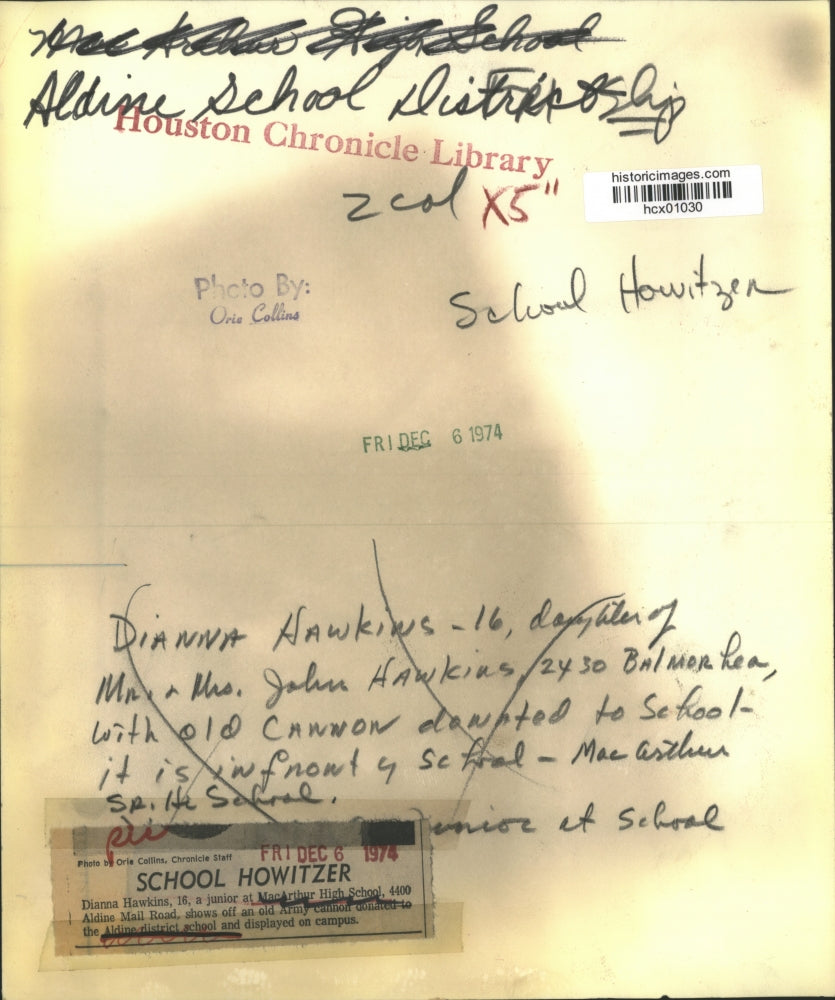 Mac Arthur High School
Aldine School District
Ship
Houston Chronicle Library
historicimages.com
hcx01030
2 col X5"
Photo By:
Orie Collins
School Howitzer
FRI DEC 6 1974
DIANNA HAWKINS - 16, daughter of
Mr. & Mrs. John HAWKINS, 2430 BAlMoRhea,
with old CANNON donated to School -
it is in front of School - MacArthur
SR. Hi School.
Junior at School
Photo by Orie Collins, Chronicle Staff
FRI DEC 6 1974
SCHOOL HOWITZER
Dianna Hawkins, 16, a junior at MacArthur High School, 4400
Aldine Mail Road, shows off an old Army cannon donated to
the Aldine district school and displayed on campus.